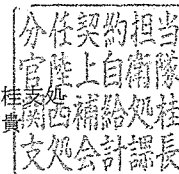 分任契約担当
官陸上自衛隊
関西補給処桂
支処会計課長
桂支処
貴